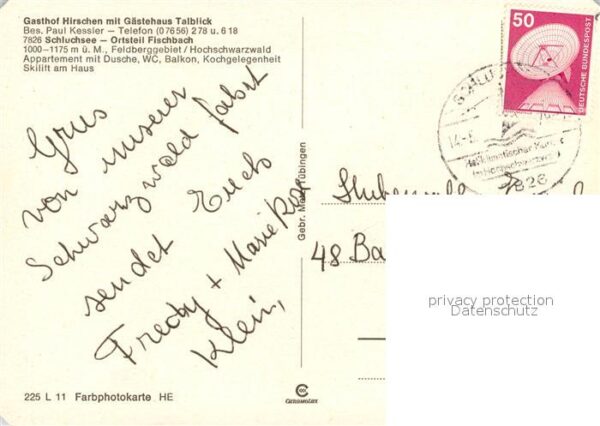 Gasthof Hirschen mit Gästehaus Talblick
Bes. Paul Kessler – Telefon (07656) 278 u. 618
7826 Schluchsee – Ortsteil Fischbach
1000–1175 m ü. M., Feldberggebiet / Hochschwarzwald
Appartement mit Dusche, WC, Balkon, Kochgelegenheit
Skilift am Haus
Grus
von unserer
Schwarzwald fahrt
sendet Euch
Fredy + Marie Rose
Klein,
Gebr. Metz Tübingen
50
DEUTSCHE BUNDESPOST
Heilklimatischer Kurort
im Hochschwarzwald
7826
48 Ba
privacy protection
Datenschutz
225 L 11 Farbphotokarte HE